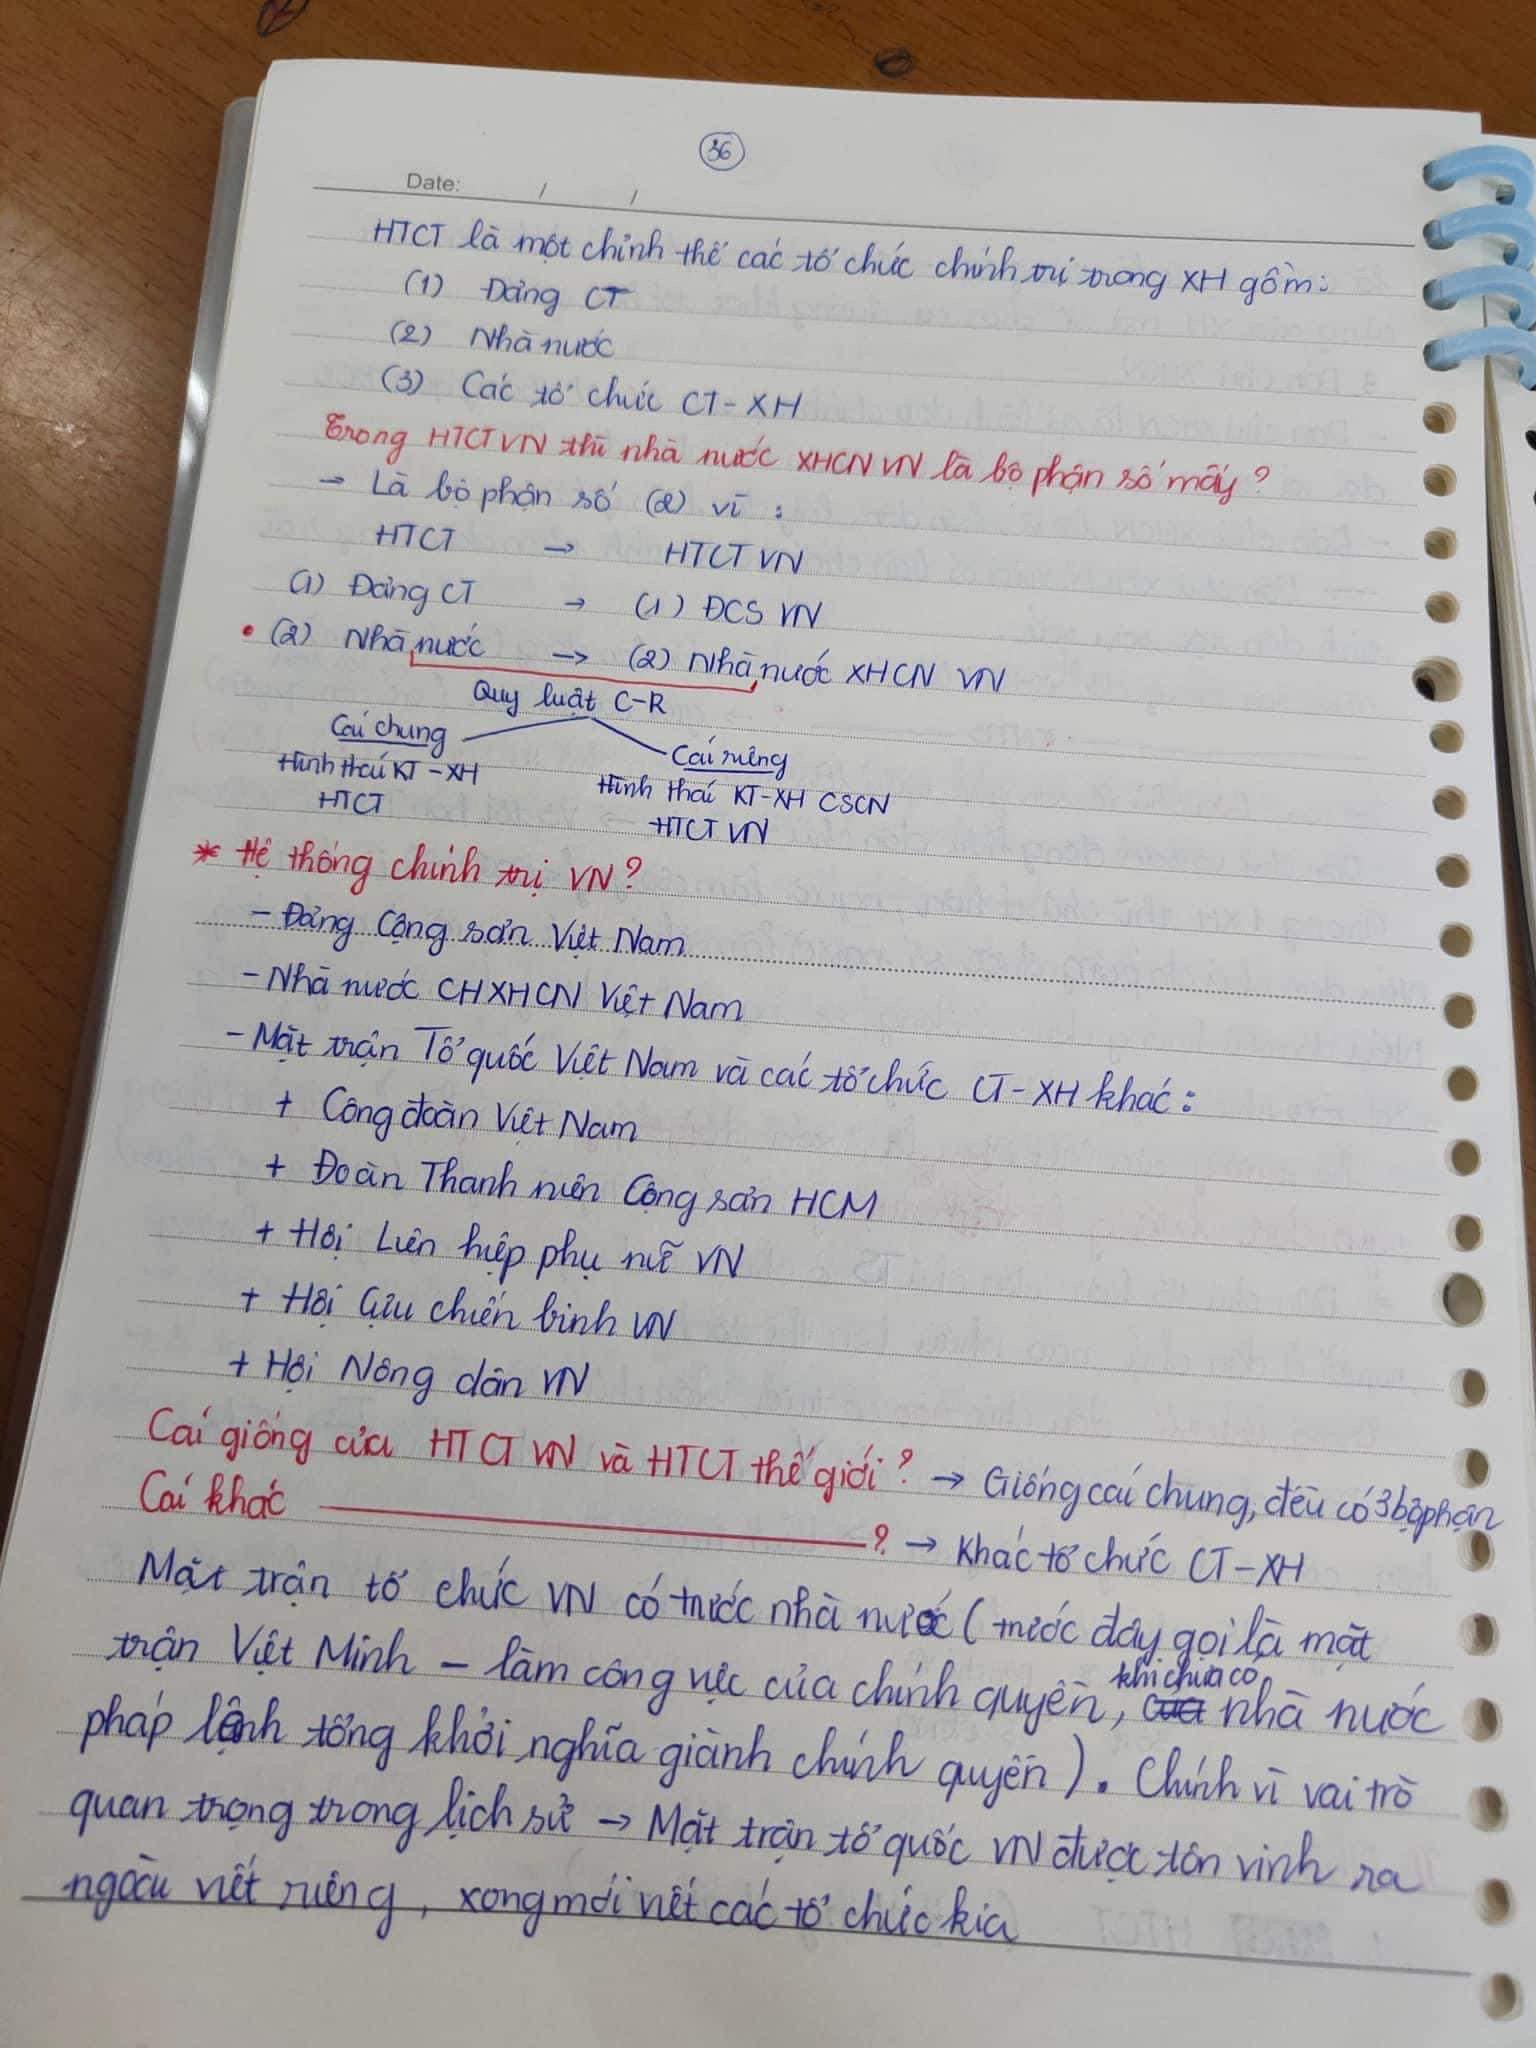 36
Date: / /
HTCT là một chỉnh thế các tổ chức chính trị trong XH gồm:
(1) Đảng CT
(2) Nhà nước
(3) Các tổ chức CT-XH
Trong HTCT VN thì nhà nước XHCN VN là bộ phận số mấy?
→ Là bộ phận số (2) vì:
HTCT → HTCT VN
(1) Đảng CT → (1) ĐCS VN
(2) Nhà nước → (2) Nhà nước XHCN VN
Quy luật C-R
Cái chung Cái riêng
Hình thái KT-XH Hình thái KT-XH CSCN
HTCT HTCT VN
* Hệ thống chính trị VN?
- Đảng Cộng sản Việt Nam
- Nhà nước CHXHCN Việt Nam
- Mặt trận Tổ quốc Việt Nam và các tổ chức CT-XH khác:
+ Công đoàn Việt Nam
+ Đoàn Thanh niên Cộng sản HCM
+ Hội Liên hiệp phụ nữ VN
+ Hội Cựu chiến binh VN
+ Hội Nông dân VN
Cái giống của HTCT VN và HTCT thế giới? → Giống cái chung, đều có 3 bộ phận
Cái khác ? → Khác tổ chức CT-XH
Mặt trận tổ chức VN có trước nhà nước (trước đây gọi là mặt
trận Việt Minh - làm công việc của chính quyền, khi chưa có nhà nước
pháp lệnh tổng khởi nghĩa giành chính quyền). Chính vì vai trò
quan trọng trong lịch sử → Mặt trận tổ quốc VN được tôn vinh ra
ngoài viết riêng, xong mới viết các tổ chức kia